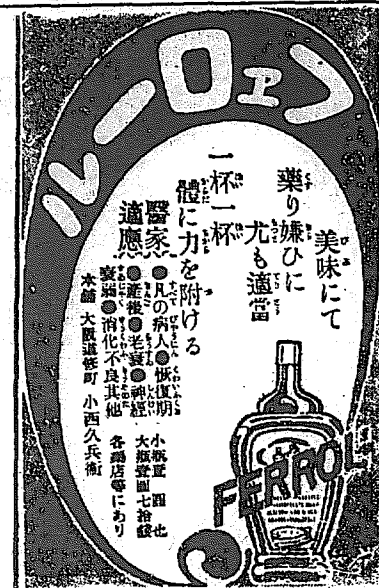 フェロール
美味にて
藥り嫌ひに
尤も適當
一杯一杯
體に力を附ける
醫家
適應
●凡の病人●恢復期
●産後●老衰●神經
衰弱●消化不良其他
小瓶壹圓也
大瓶壹圓七拾錢
各藥店等にあり
本舖 大阪道修町 小西久兵衞
FERROL